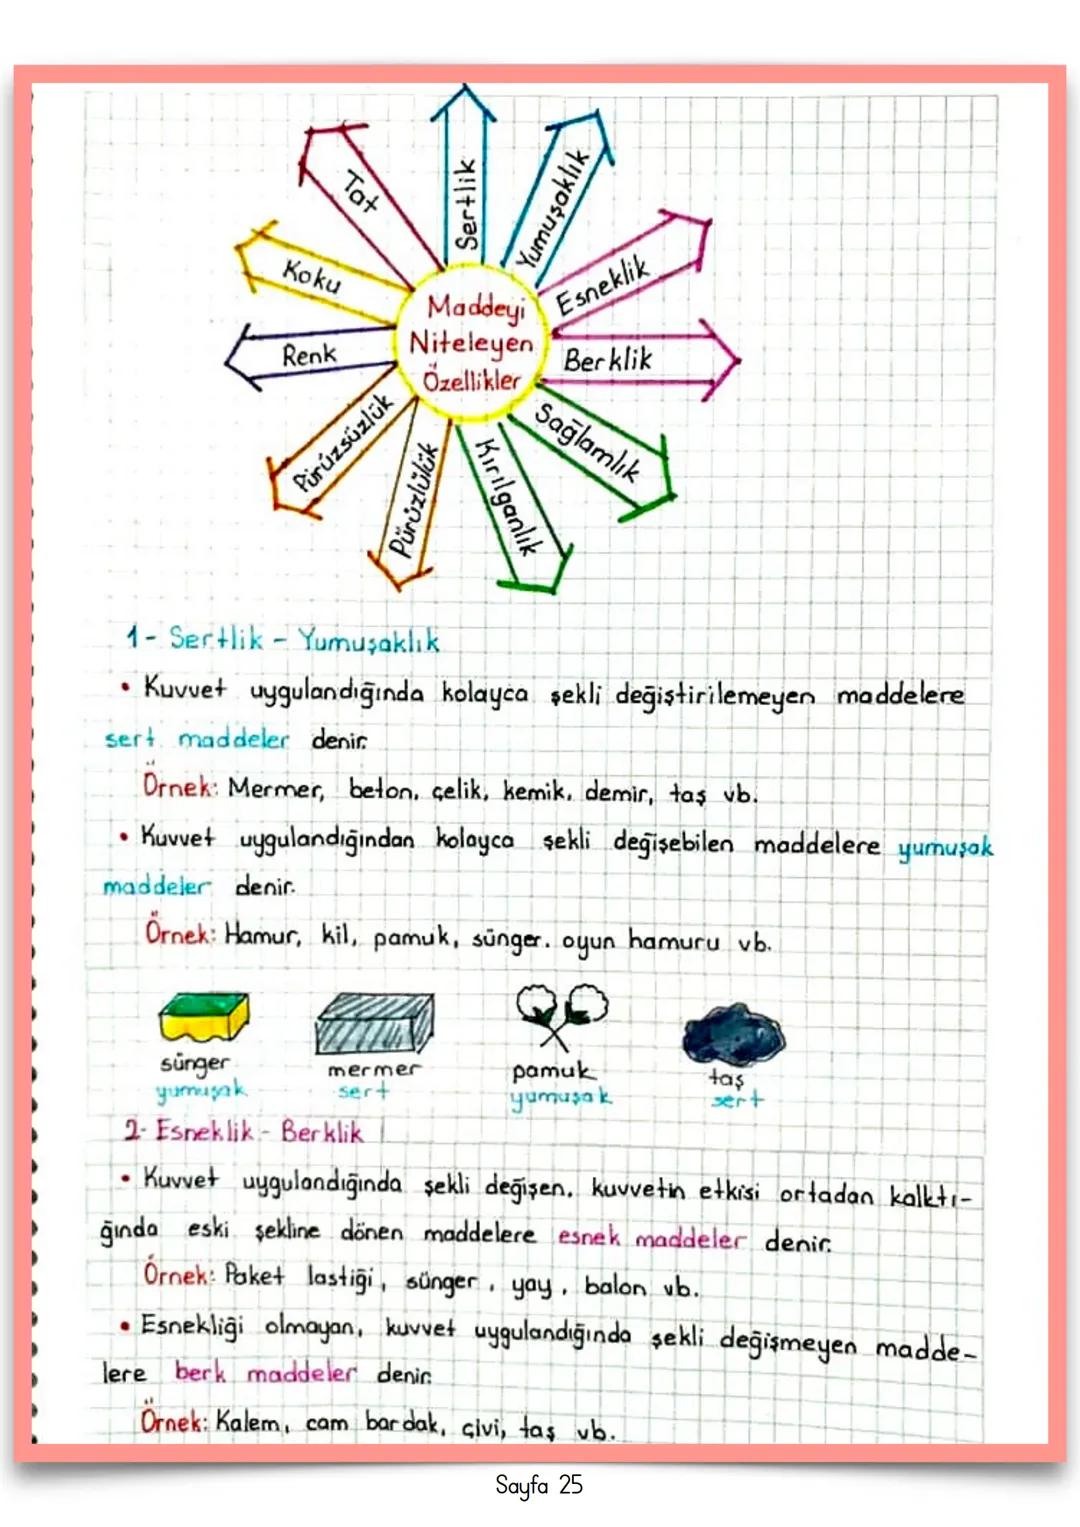 Sertlik
Yumuşaklık
Esneklik
Berklik
Sağlamlık
Kırılganlık
Pürüzlülük
Pürüzsüzlük
Renk
Koku
Tat
Maddeyi
Niteleyen
Özellikler
1- Sertlik - Yumuşaklık
• Kuvvet uygulandığında kolayca şekli değiştirilemeyen maddelere
sert maddeler denir.
Örnek: Mermer, beton, çelik, kemik, demir, taş vb.
• Kuvvet uygulandığından kolayca şekli değişebilen maddelere yumuşak
maddeler denir.
Örnek: Hamur, kil, pamuk, sünger, oyun hamuru vb.
sünger mermer pamuk taş
yumuşak sert yumuşak sert
2- Esneklik - Berklik
• Kuvvet uygulandığında şekli değişen, kuvvetin etkisi ortadan kalktı-
ğında eski şekline dönen maddelere esnek maddeler denir.
Örnek: Paket lastiği, sünger, yay, balon vb.
• Esnekliği olmayan, kuvvet uygulandığında şekli değişmeyen madde-
lere berk maddeler denir.
Örnek: Kalem, cam bardak, çivi, taş vb.
Sayfa 25